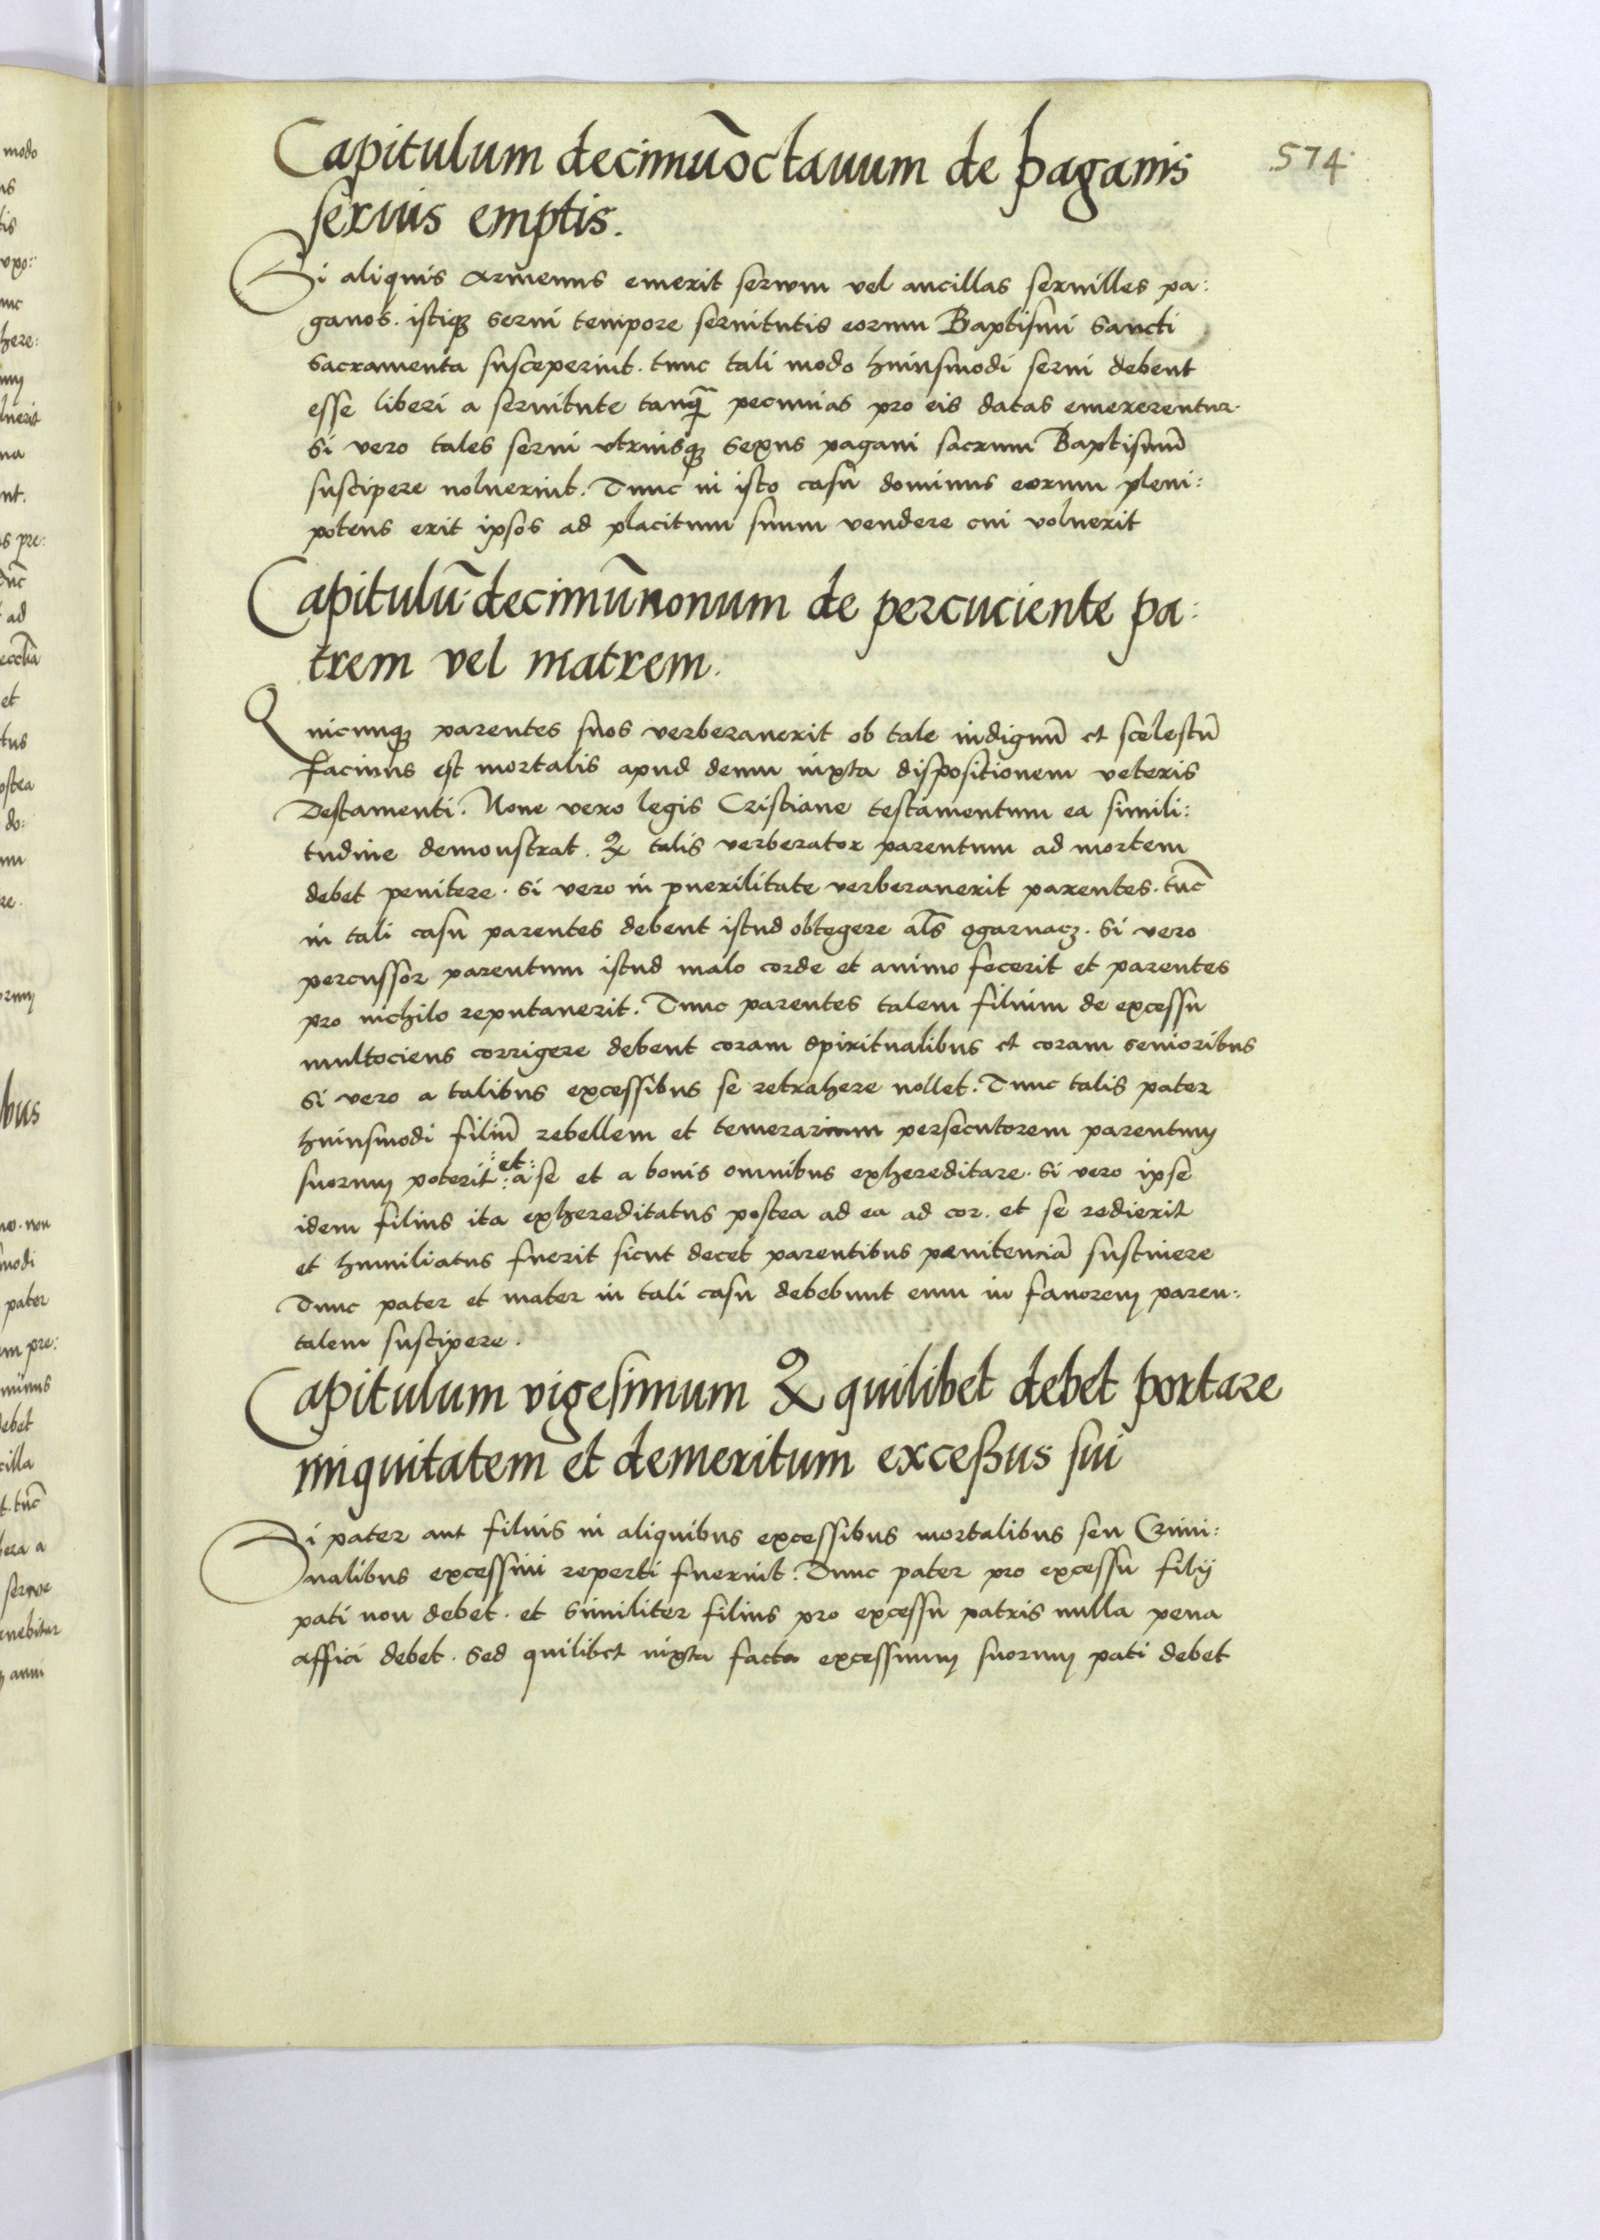 574
Capitulum decimũoctauum de paganis
seruis emptis.
Si aliquis Armenus emerit seruum vel ancillas seruilles pa:
ganos. istiqꝫ serui tempore seruitutis eorum Baptismi sancti
sacramenta susceperint. tunc tali modo huiusmodi serui debent
esse liberi a seruitute tanqꝫ̃ pecunias pro eis datas emererentur.
si vero tales serui vtriusqꝫ sexus pagani sacrum Baptismũ
suscipere noluerint. Tunc in isto casu dominus eorum pleni:
potens erit ipsos ad placitum suum vendere cui voluerit
Capitulũ decimũnonum de percuciente pa:
trem vel matrem.
Quicunqꝫ parentes suos verberauerit ob tale indignũ et scelestũ
facinus est mortalis apud deum iuxta dispositionem veteris
Testamenti. Noue vero legis Cristiane testamentum ea simili:
tudine demonstrat. Ꝙ talis verberator parentum ad mortem
debet penitere. si vero in puerilitate verberauerit parentes. tũc
in tali casu parentes debent istud obtegere al̃s ogarnacz. si vero
percussor parentum istud malo corde et animo fecerit et parentes
pro nichilo reputauerit. Tunc parentes talem filium de excessu
multociens corrigere debent coram spiritualibus et coram senioribus
si vero a talibus excessibus se retrahere nollet. Tunc talis pater
huiusmodi filiũ rebellem et temerarium persecutorem parentum
suorum poterit :et: a se et a bonis omnibus exhereditare. si vero ipse
idem filius ita exhereditatus postea ad ea ad cor. et se redierit
et humiliatus fuerit sicut decet parentibus penitenciã sustinere
Tunc pater et mater in tali casu debebunt eum in fauorem paren:
talem suscipere.
Capitulum vigesimum Ꝙ quilibet debet portare
iniquitatem et demeritum excessus sui
Si pater aut filius in aliquibus excessibus mortalibus seu Crimi:
nalibus excessiui reperti fuerint. Tunc pater pro excessu filij
pati non debet. et similiter filius pro excessu patris nulla pena
affici debet. sed quilibet iuxta facta excessuum suorum pati debet